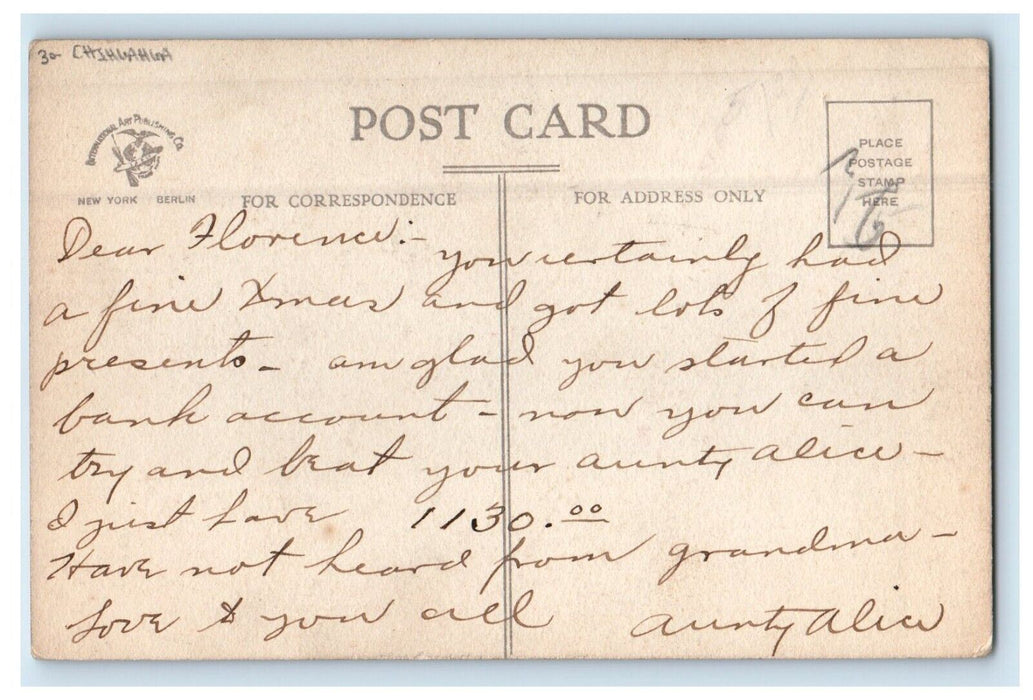 30 CHIHUAHUA
POST CARD
INTERNATIONAL ART PUBLISHING CO.
NEW YORK BERLIN
FOR CORRESPONDENCE
FOR ADDRESS ONLY
PLACE
POSTAGE
STAMP
HERE
Dear Florence:-
you certainly had
a fine Xmas and got lots of fine
presents - am glad you started a
bank account - now you can
try and beat your aunty Alice -
I just have 1130.00
Have not heard from grandma -
Love to you all aunty Alice